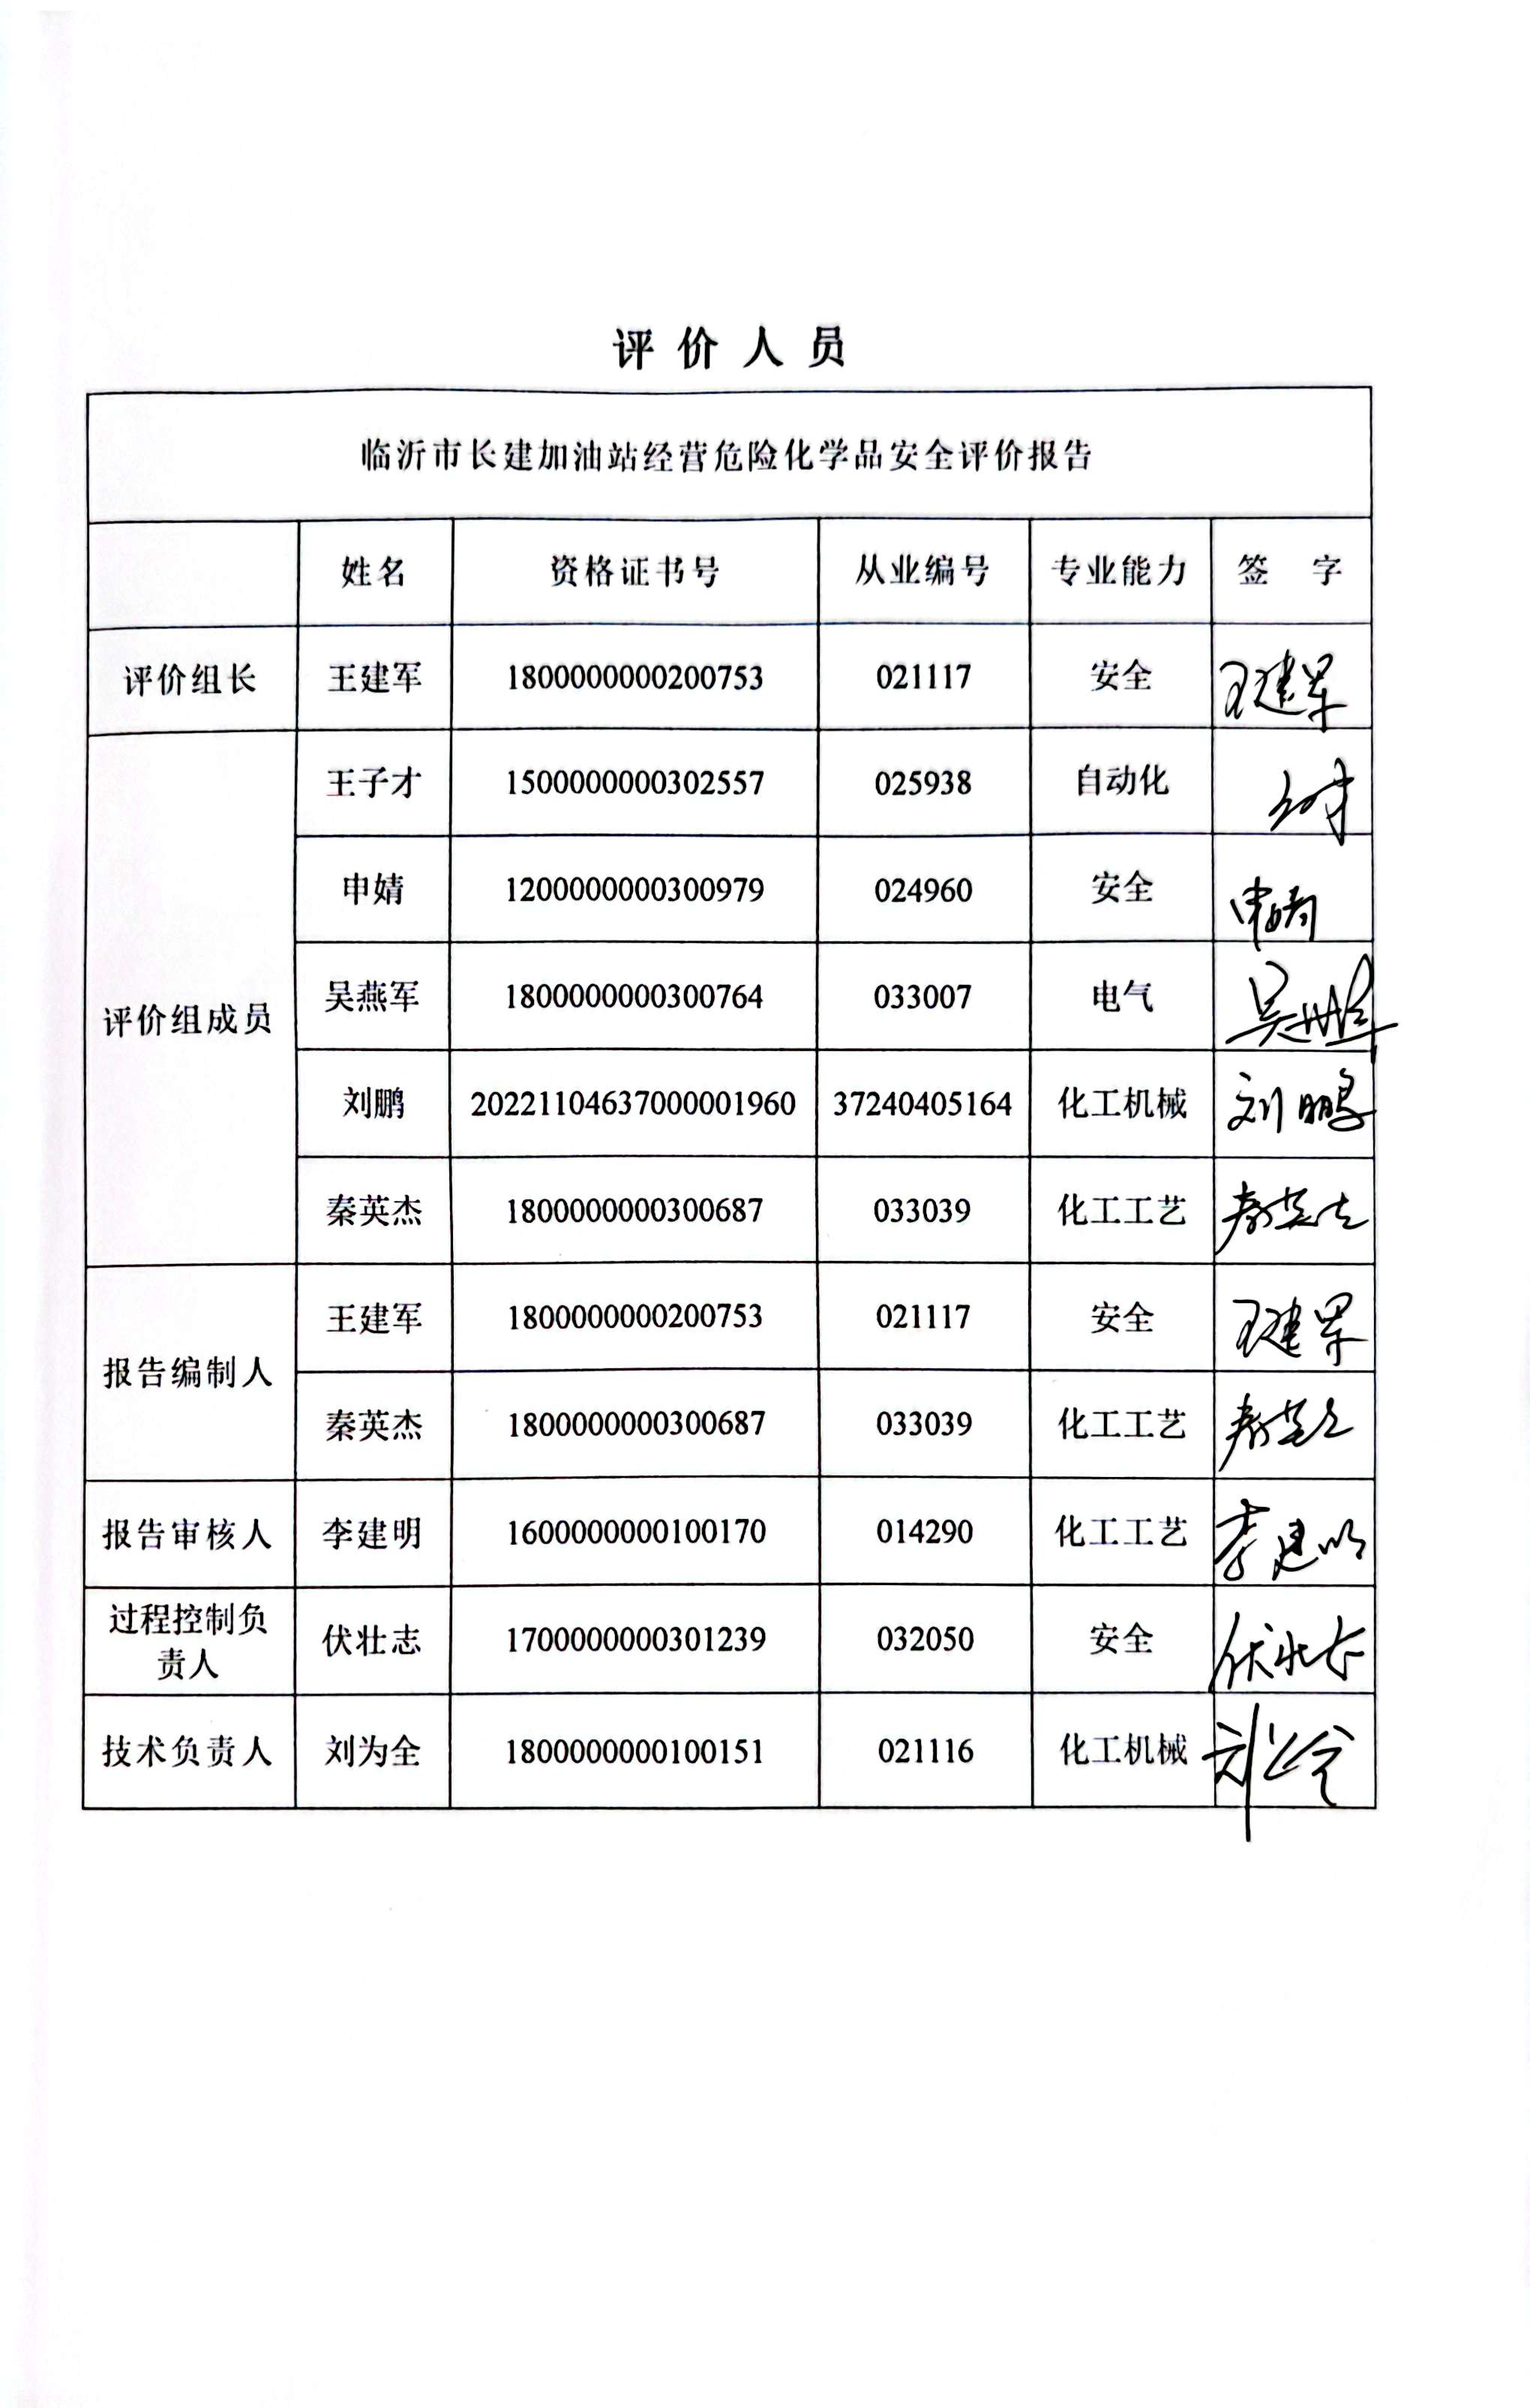 评价人员
临沂市长建加油站经营危险化学品安全评价报告
姓名 资格证书号 从业编号 专业能力 签 字
评价组长 王建军 1800000000200753 021117 安全 王建军
评价组成员
王子才 1500000000302557 025938 自动化
申婧 1200000000300979 024960 安全 申婧
吴燕军 1800000000300764 033007 电气
刘鹏 20221104637000001960 37240405164 化工机械 刘鹏
秦英杰 1800000000300687 033039 化工工艺 秦英杰
报告编制人
王建军 1800000000200753 021117 安全 王建军
秦英杰 1800000000300687 033039 化工工艺 秦英杰
报告审核人 李建明 1600000000100170 014290 化工工艺 李建明
过程控制负
责人
伏壮志 1700000000301239 032050 安全 伏壮志
技术负责人 刘为全 1800000000100151 021116 化工机械 刘为全